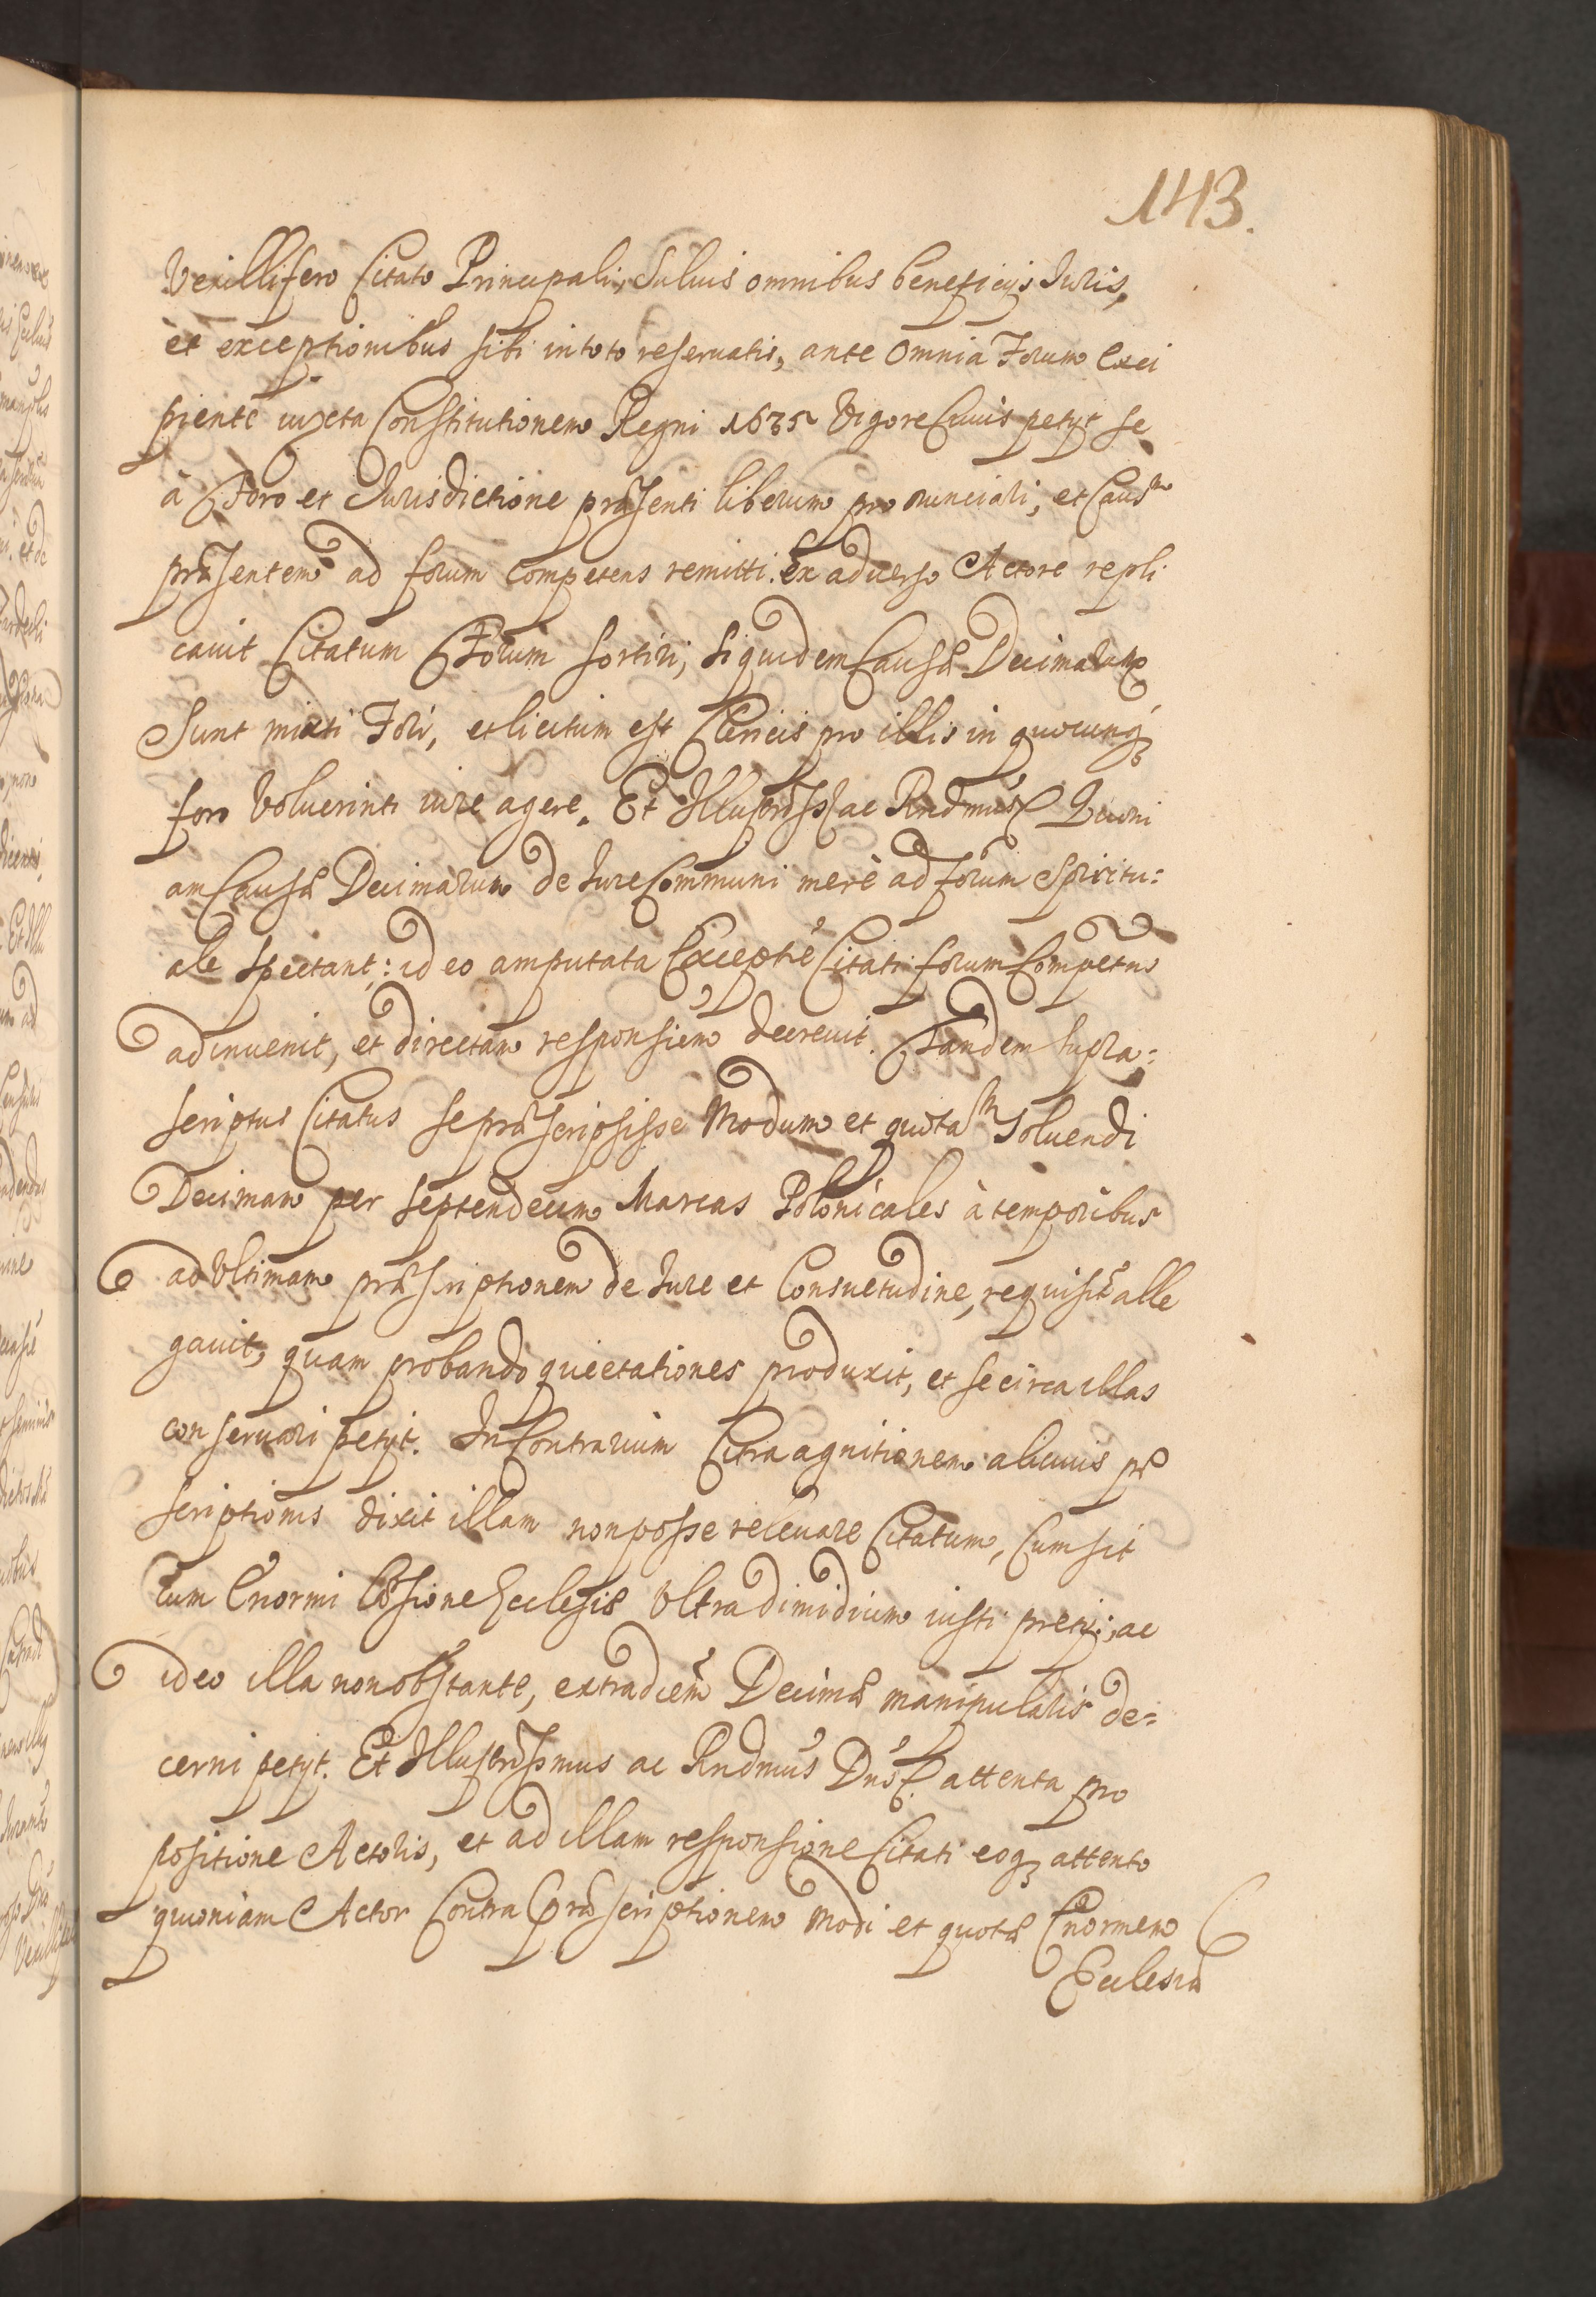 143.
Vexillifero Citato Principali, Saluis omnibus beneficijs Iuris,
et exceptionibus sibi in toto reseruatis, ante omnia Forum Exci
piente iuxta Constitutionem Regni 1635 Vigore Cuius petijt se
à Foro et Iurisdictione præsenti liberum pro nunciari, et Causm
præsentem ad forum Competens remitti. Ex aduerso Actore repli
cauit Citatum Forum sortiri, siquidem Causæ Decimarum
Sunt mixti Fori, et licitum est Clericis pro illis in quocunq3
foro Voluerint iure agere. Et Illustriss ac Rndmus Quoni
am Causæ Decimarum de Iure Communi merè ad forum Spiritu:
ale Spectant: ideo amputata Exceptne Citati forum Competens
adinuenit, et directam responsiem decreuit. Tandem supra:
scriptus Citatus se præscripsisse Modum et quotam Soluendi
Decimam per Septendecim Marcas Polonicales à temporibus
ad Vltimam præscriptionem de Iure et Consuetudine, requisit alle
gauit, quam probando quietationes produxit, et se circa illas
conseruari petijt. In Contrarium Citra agnitionem alicuius præ
scriptionis dixit illam non posse releuare Citatum, Cum sit
Cum Enormi læsione Ecclesiæ Vltra dimidium iusti pretij: ac
ideo illa non obstante, extradiem Decimæ manipularis de=
cerni petijt. Et Illustrissimus ac Rndmus Dnus attenta pro
positione Actoris, et ad illam responsione Citati eoq3 attento
quoniam Actor Contra præscriptionem Modi et quotæ Enormem
Ecclesiæ